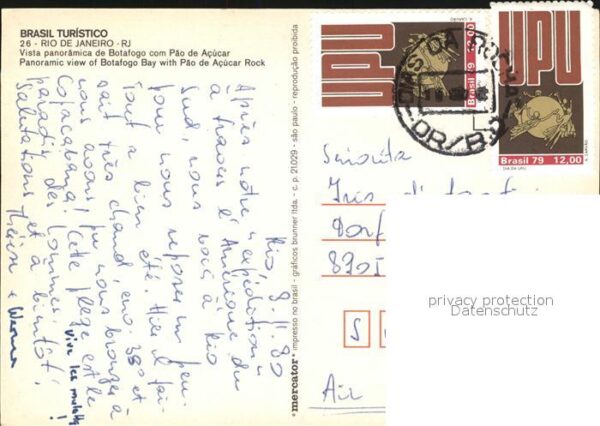 BRASIL TURÍSTICO
26 - RIO DE JANEIRO - RJ
Vista panorâmica de Botafogo com Pão de Açúcar
Panoramic view of Botafogo Bay with Pão de Açúcar Rock
Rio, 9.11.80
Après notre "expédition"
à travers l'Amérique du
Sud, nous voilà à Rio
pour nous reposer un peu.
Tout a bien été. Hier il fai-
sait très chaud, env. 38° et
nous avons pu nous bronzer à
Copacabana. Cette plage est le
paradis des hommes.
vive les
Salutations et à bientôt!
Thérèse + Werner
mercator impresso no brasil - gráficos brunner ltda. - c. p. 21029 - são paulo - reprodução proibida
UPU
Brasil 79 12,00
UPU
Brasil 79 12,00
DIA DA UPU
Iris
Dorf
8901
S
Air
privacy protection
Datenschutz